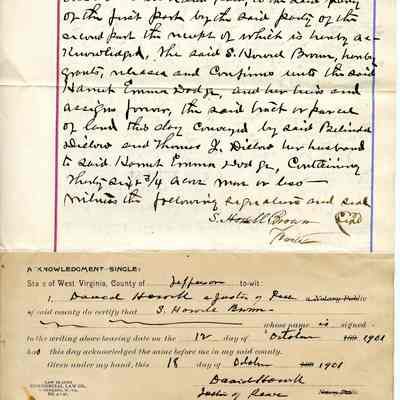 of the first part by the said party of the
second part the receipt of which is hereby ac-
knowledged, The said S. Howell Brown, hereby
grants, releases and Confirms unto the said
Harriet Emma Dodge, and her heirs and
assigns forever, the said tract or parcel
of land this day conveyed by said Belinda
Dielow and Thomas J. Dielow her husband
to said Harriet Emma Dodge, Containing
Thirty six 3/4 acres more or less
Witness the following signature and seal
S. Howell Brown Seal
Trustee
ACKNOWLEDGMENT-SINGLE:
State of West Virginia, County of Jefferson to-wit:
I, David Howell a Justice of Peace a Notary Public
of said county do certify that S. Howell Brown
whose name is signed
to the writing above bearing date on the 12 day of October 1901
has this day acknowledged the same before me in my said county.
Given under my hand, this 18 day of October 1901
David Howell
Justice of Peace
COMMERCIAL LAW CO.